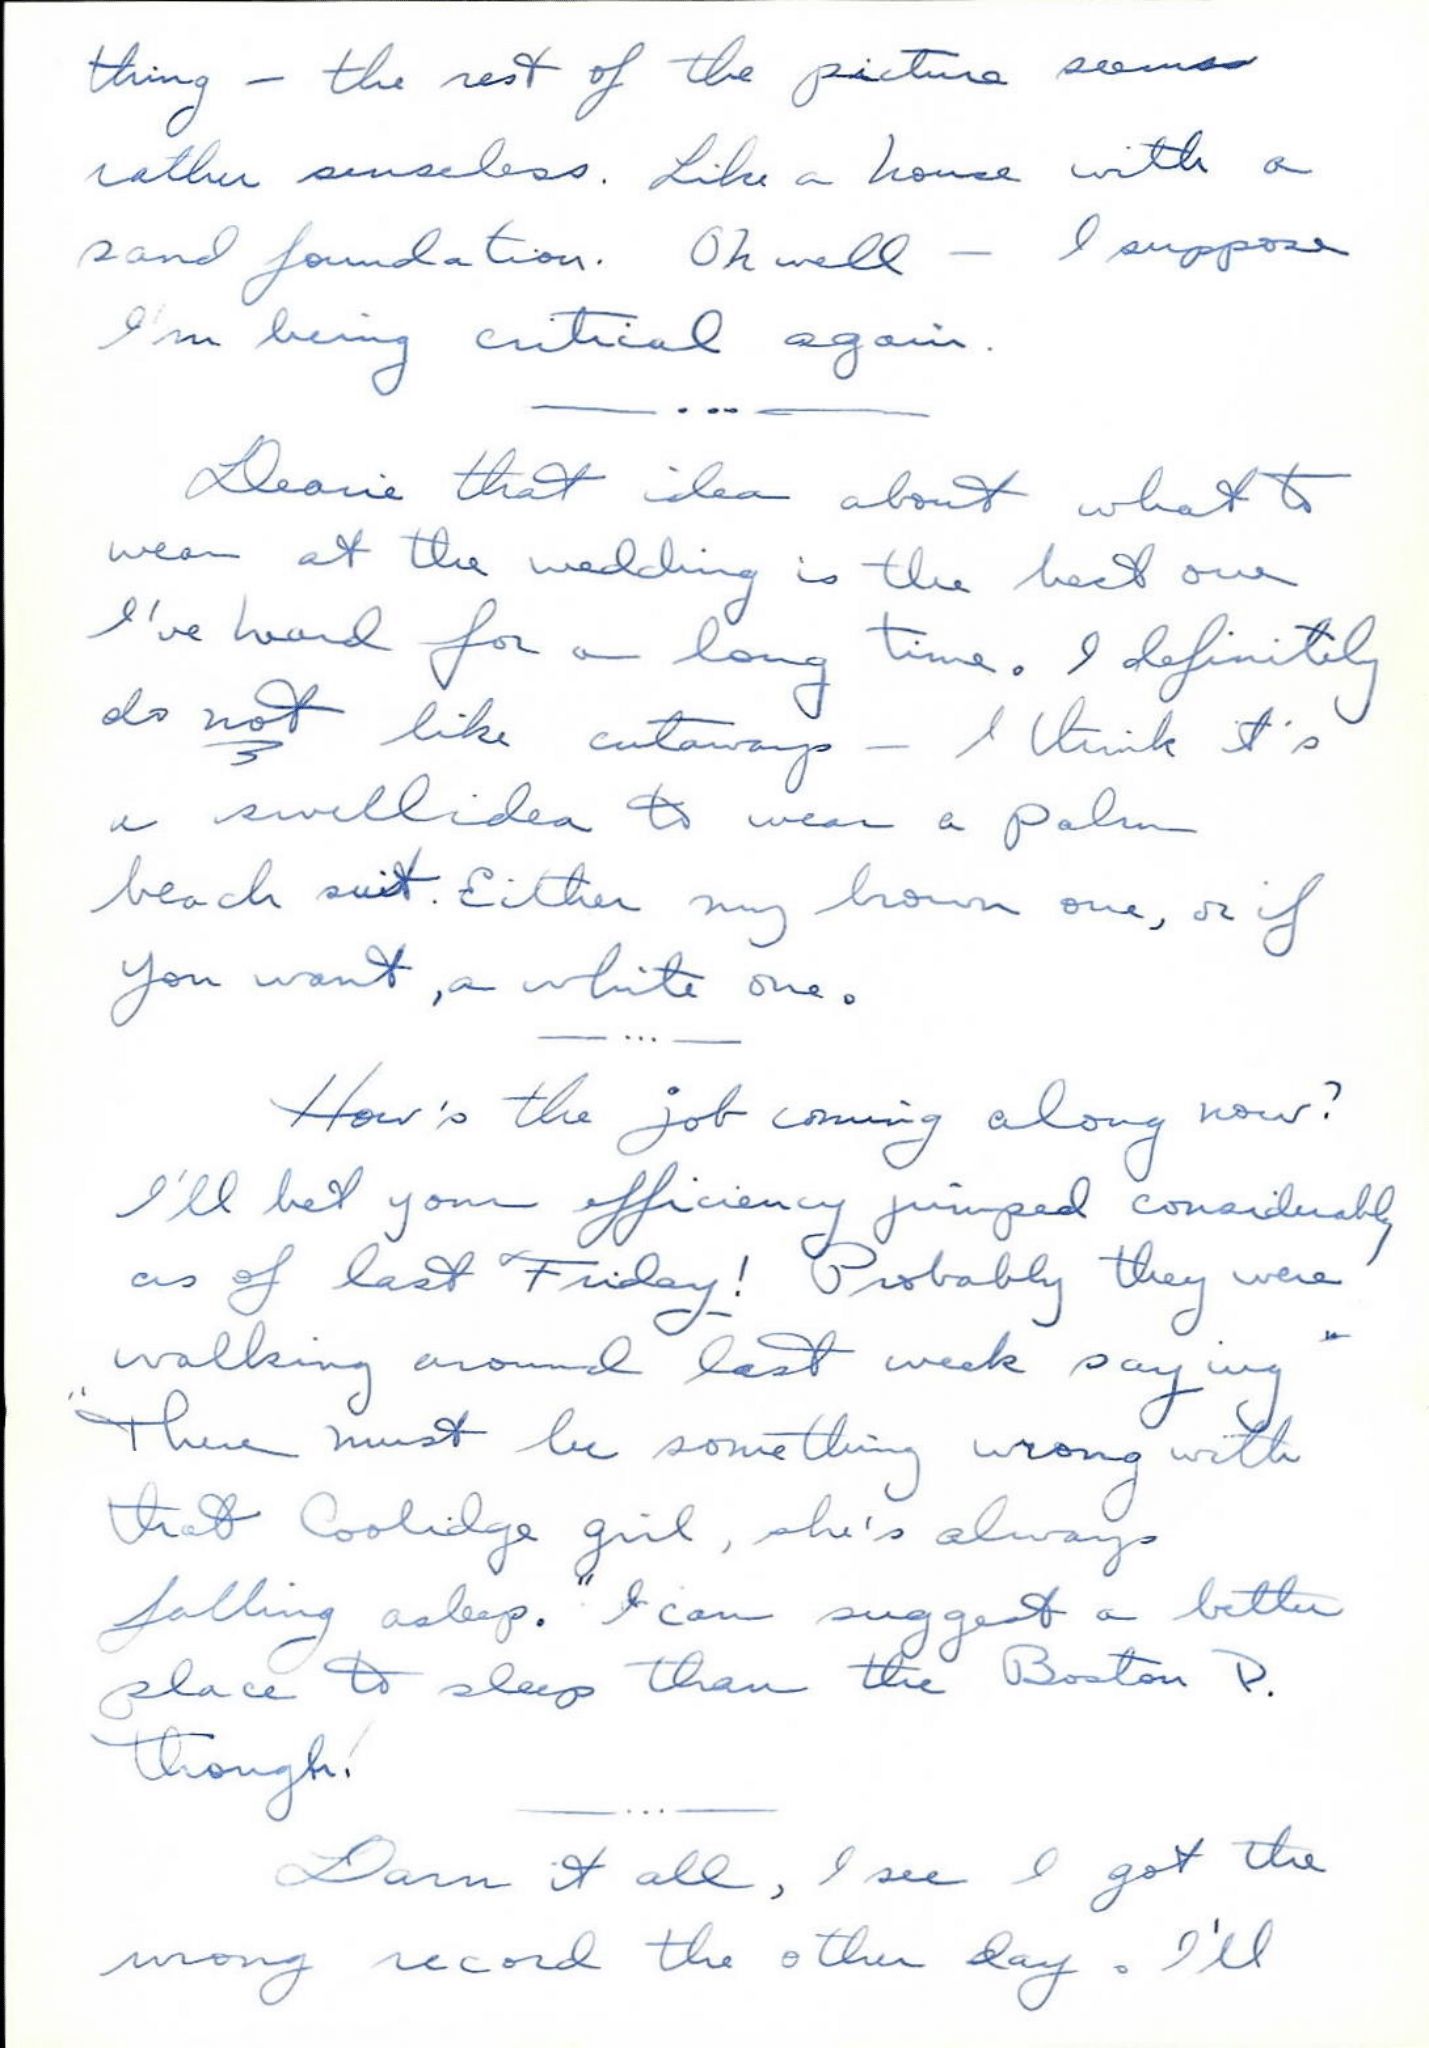 thing – the rest of the picture seems
rather senseless. Like a house with a
sand foundation. Oh well – I suppose
I'm being critical again.
Dearie that idea about what to
wear at the wedding is the best one
I've heard for a long time. I definitely
do not like cutaways – I think it's
a swell idea to wear a palm
beach suit. Either my brown one, or if
you want, a white one.
How's the job coming along now?
I'll bet your efficiency jumped considerably
as of last Friday! Probably they were
walking around last week saying "
"There must be something wrong with
that Coolidge girl, she's always
falling asleep." I can suggest a better
place to sleep than the Boston P.
though!
Darn it all, I see I got the
wrong record the other day. I'll